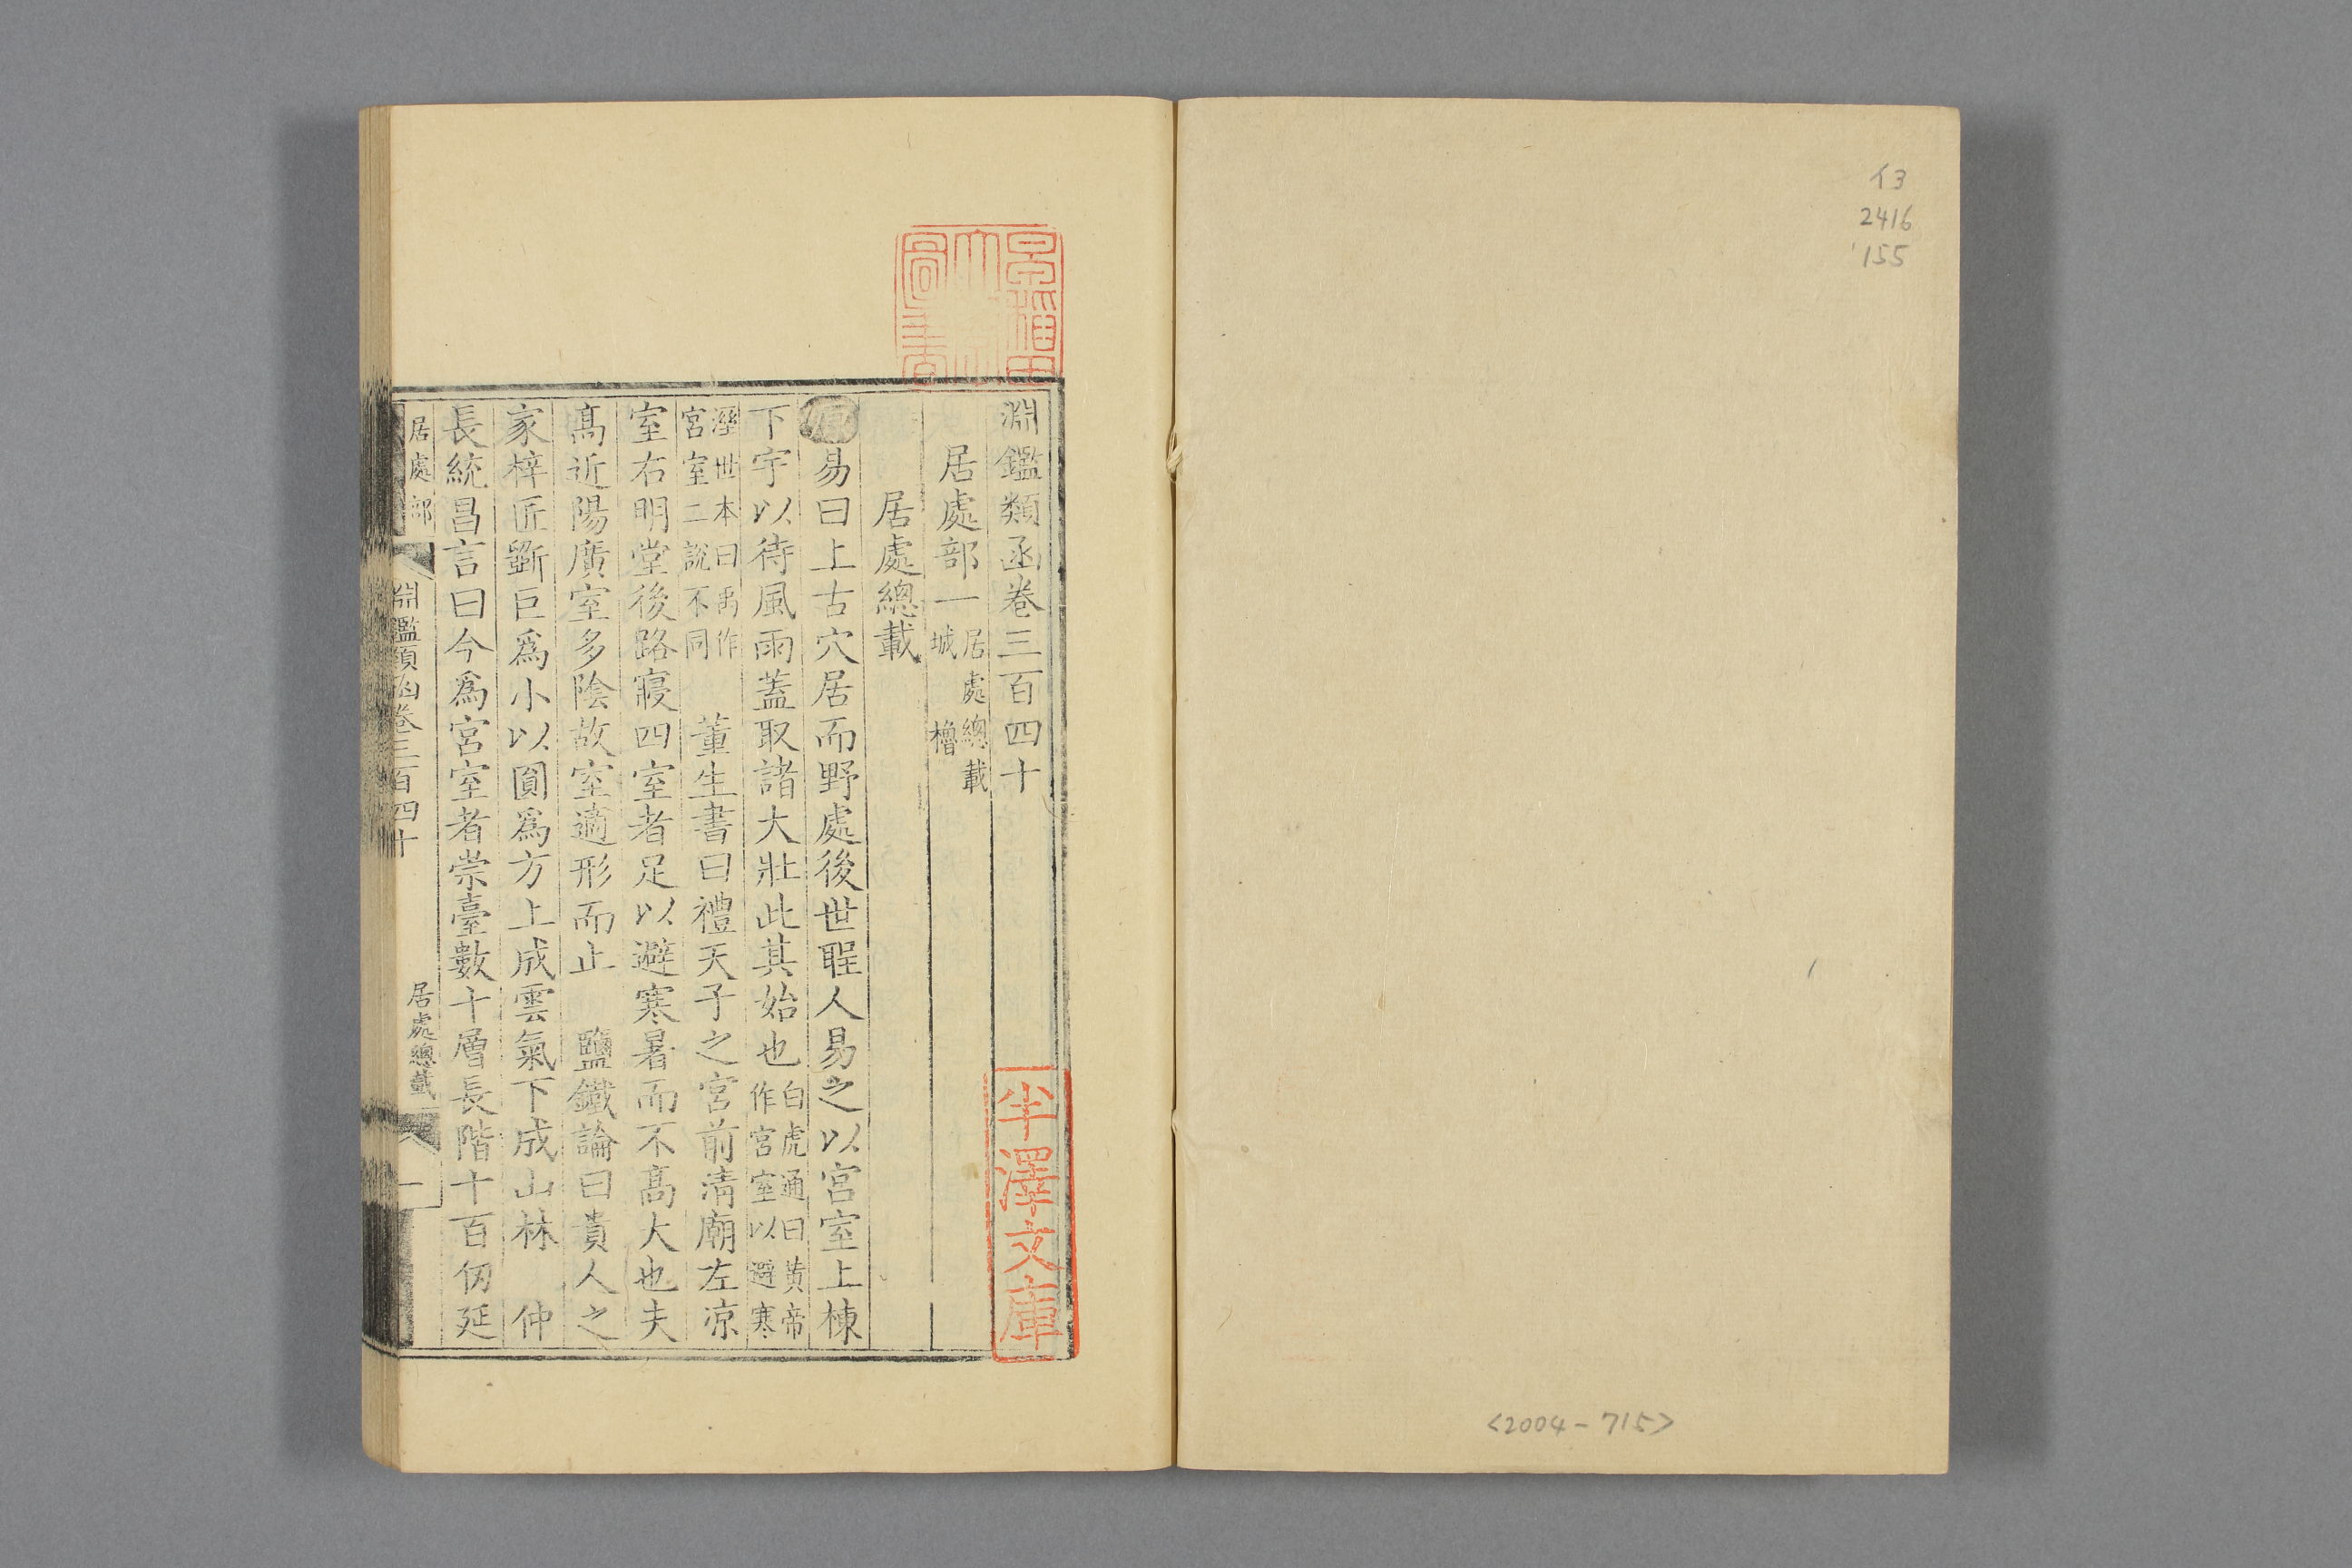 イ3
2416
155
<2004-715>
早稲田
大學
圖書
淵鑑類函卷三百四十
居處部一
居處總載
城 櫓
居處總載
原易曰上古穴居而野處後世聖人易之以宮室上棟
下宇以待風雨蓋取諸大壯此其始也
白虎通曰黄帝
作宮室以避寒
溼世本曰禹作
宮室二說不同
董生書曰禮天子之宮前清廟左凉
室右明堂後路寢四室者足以避寒暑而不髙大也夫
髙近陽廣室多陰故室適形而止 鹽鐵論曰貴人之
家梓匠斲巨爲小以圓爲方上成雲氣下成山林 仲
長統昌言曰今爲宮室者崇臺數十層長階十百仞延
居處部
淵鑑類函卷三百四十
居處總載
一
半澤文庫